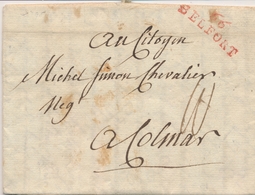 66
BELFORT
Au Citoyen
Michel Simon Chevalier
Neg
A Colmar